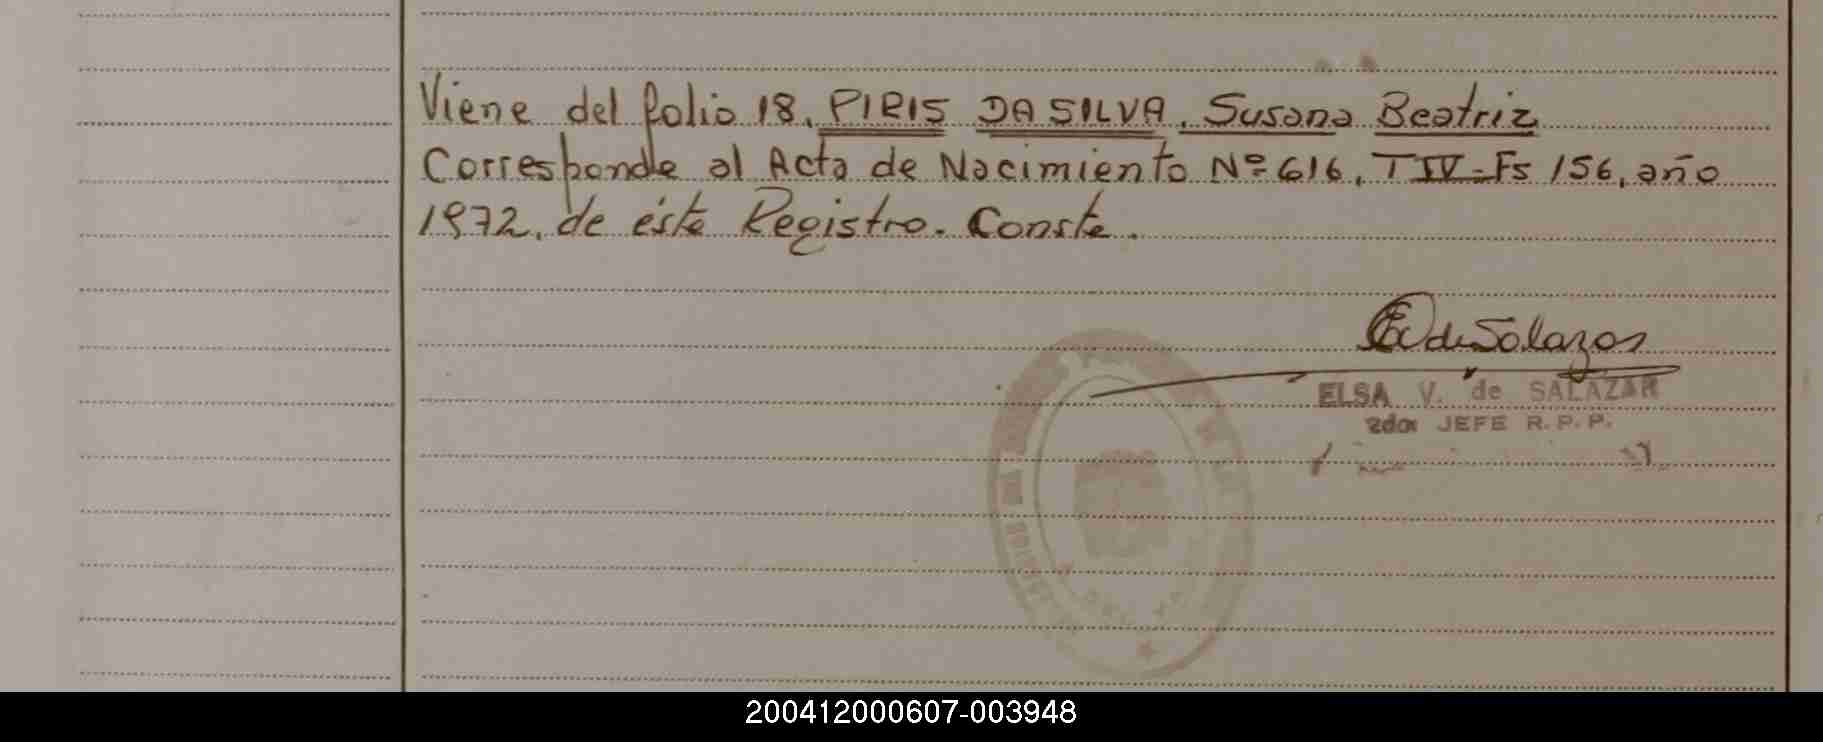 Viene del folio 18. PIRIS DA SILVA. Susana Beatriz
Corresponde al Acta de Nacimiento Nº 616, T IV - Fs 156, año
1972. de éste Registro. Conste.
de Salazar
ELSA V. de SALAZAR
2do. JEFE R.P.P.
200412000607-003948